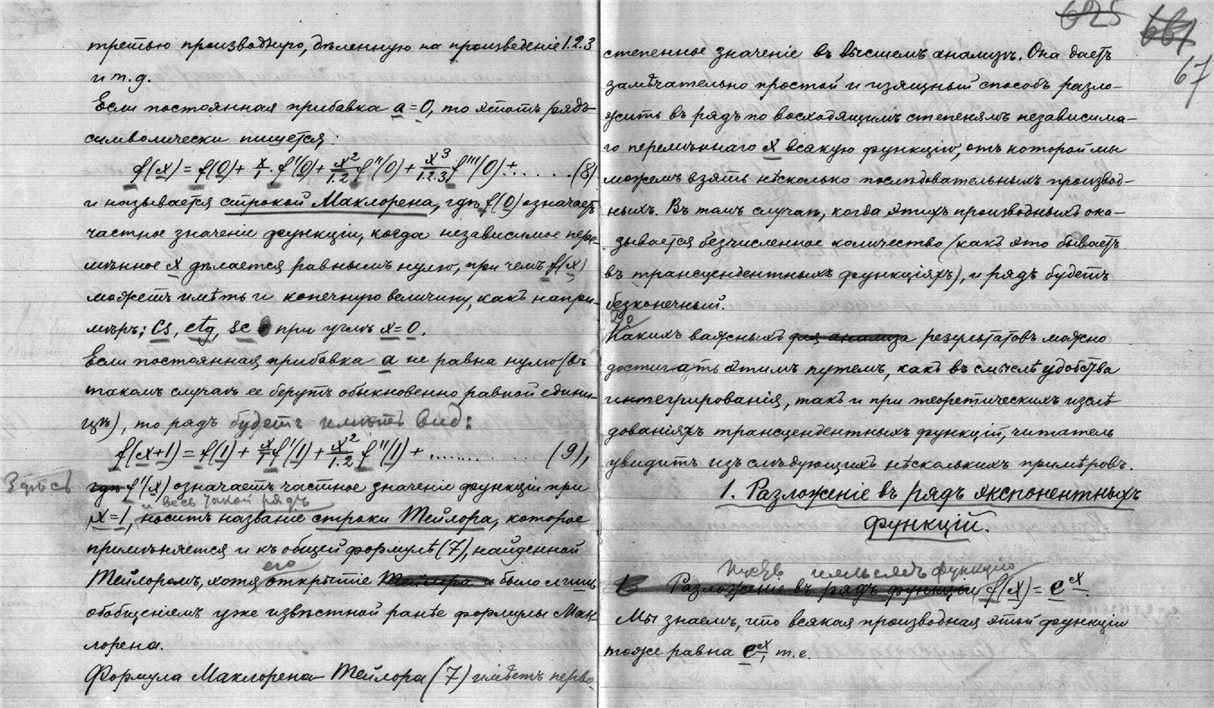 третью производную, дѣленную на произведеніе 1.2.3
и т.д.
Если постоянная прибавка a=0, то этотъ рядъ
символически пишется:
f(x) = f(0) + x/1 · f'(0) + x²/1.2 f''(0) + x³/1.2.3 f'''(0) + . . . . . . (8)
и называется строкой Маклорена, гдѣ f(0) означаетъ
частное значеніе функціи, когда независимое пере-
мѣнное x дѣлается равнымъ нулю, при чемъ f(x)
можетъ имѣть и конечную величину, какъ напри-
мѣръ; cs, ctg, sc при углѣ x=0.
Если постоянная прибавка a не равна нулю (въ
такомъ случаѣ ее берутъ обыкновенно равной едини-
цѣ), то рядъ будетъ имѣть видъ:
f(x+1) = f(1) + x/1 f'(1) + x²/1.2 f''(1) + . . . . . . . . (9),
Здѣсь гдѣ f'(x) означаетъ частное значеніе функціи при
и весь такой рядъ
x=1, носитъ названіе строки Тейлора, которое
примѣняется и къ общей формулѣ (7), найденной
его
Тейлоромъ, хотя открытіе Тейлора и было лишь
обобщеніемъ уже извѣстной ранѣе формулы Мак-
лорена.
Формула Маклорена-Тейлора (7) имѣетъ перво-
625 661
67
степенное значеніе въ высшемъ анализѣ. Она даетъ
замѣчательно простой и изящный способъ разло-
жить въ рядъ по восходящимъ степенямъ независима-
го перемѣннаго x всякую функцію, отъ которой мы
можемъ взять нѣсколько послѣдовательныхъ производ-
ныхъ. Въ томъ случаѣ, когда этихъ производныхъ ока-
зывается безчисленное количество (какъ это бываетъ
въ трансцендентныхъ функціяхъ), и рядъ будетъ
безконечный.
До
Какихъ важныхъ для анализа результатовъ можно
достигать этимъ путемъ, какъ въ смыслѣ удобства
интегрированія, такъ и при теоретическихъ изслѣ-
дованіяхъ трансцендентныхъ функцій, читатель
увидитъ изъ слѣдующихъ нѣсколькихъ примѣровъ.
1. Разложеніе въ рядъ экспонентныхъ
функцій.
Пусть имѣемъ функцію
Разложеніе въ рядъ функціи f(x) = eˣ.
Мы знаемъ, что всякая производная этой функціи
тоже равна eˣ, т.е.